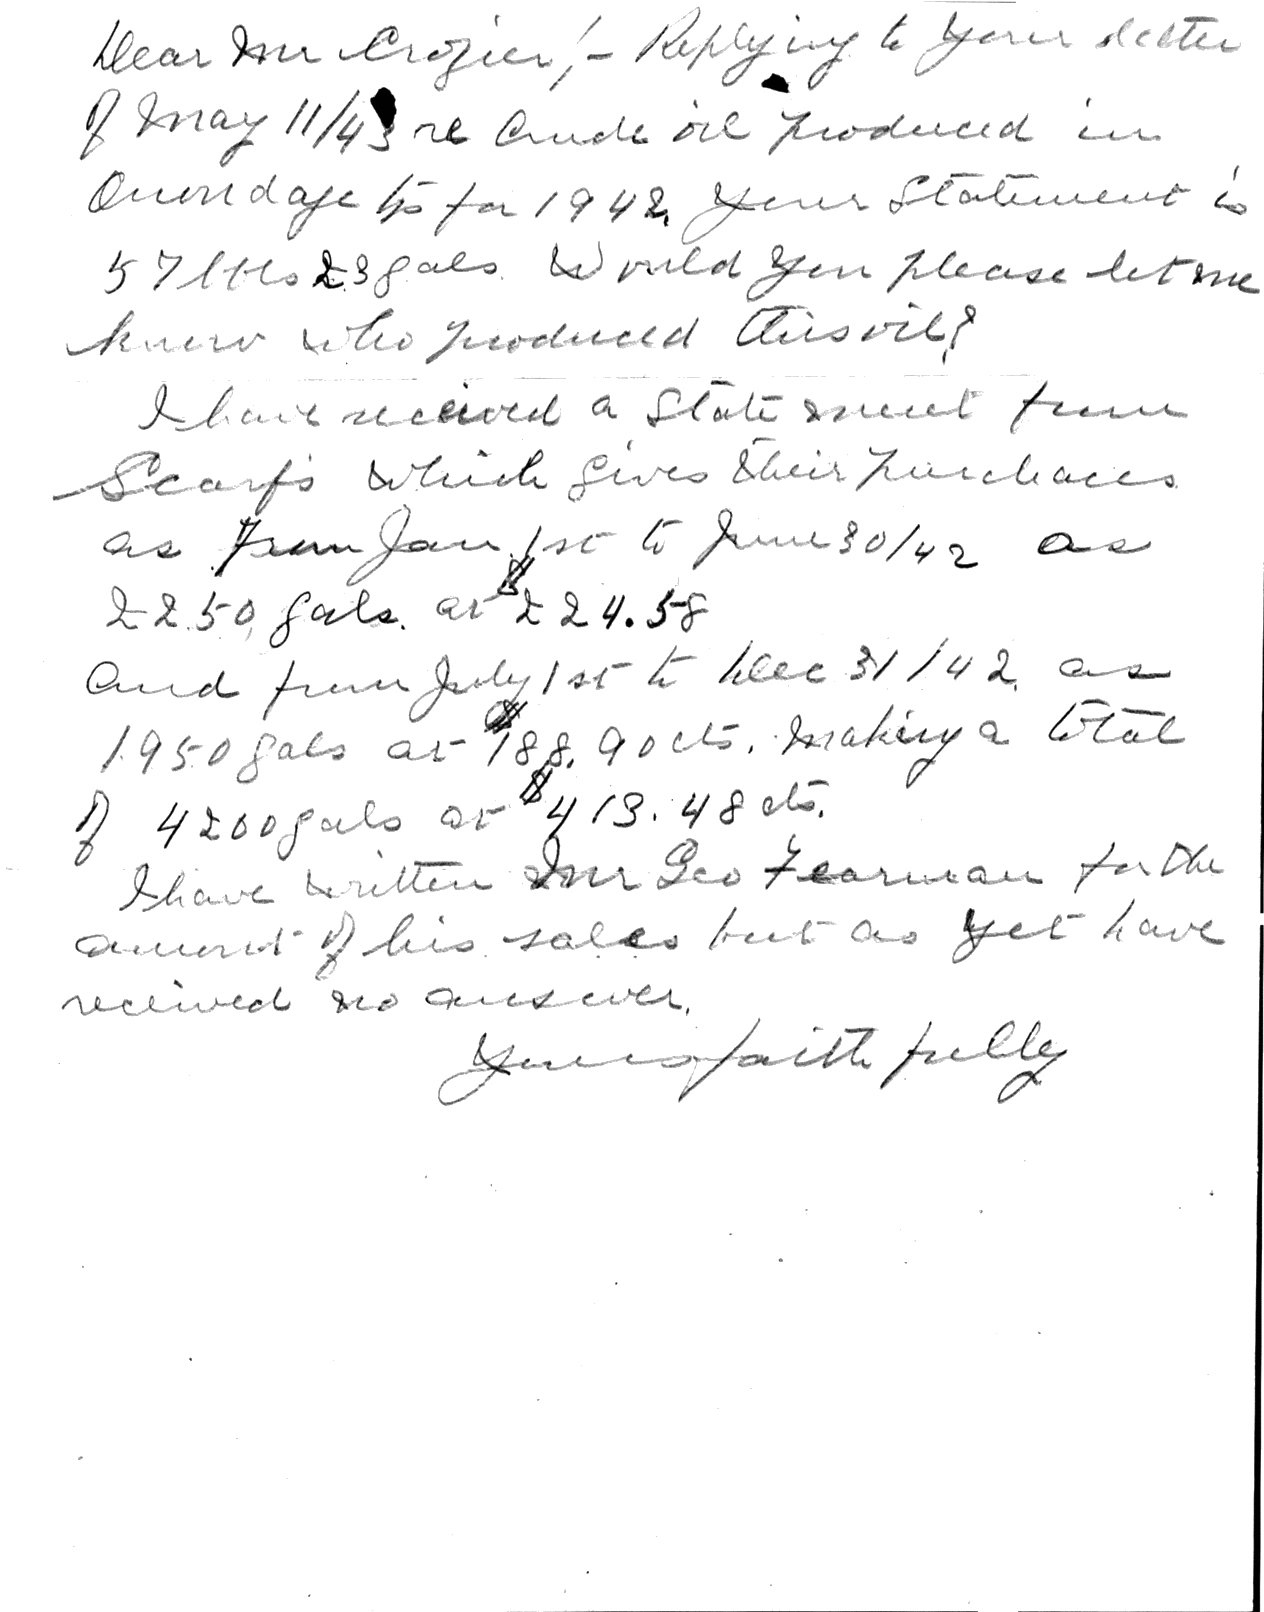 Dear Mr Crozier,!- Replying to your letter
of May 11/43 re Crude oil produced in
Onondage tp for 1942. Your Statement is
57 bbls 23 gals. Would you please let me
know who produced this oil?
I have received a Statement from
Scarfs which gives their purchases
as from Jan. 1st to June 30/42 as
2250 gals. at $224.58
and from July 1st to Dec 31/42 as
1950 gals at $188.90 cts. making a total
of 4200 gals at $413.48 cts.
I have written Mr Geo Fearman for the
amount of his sales but as yet have
received no answer.
Yours faithfully